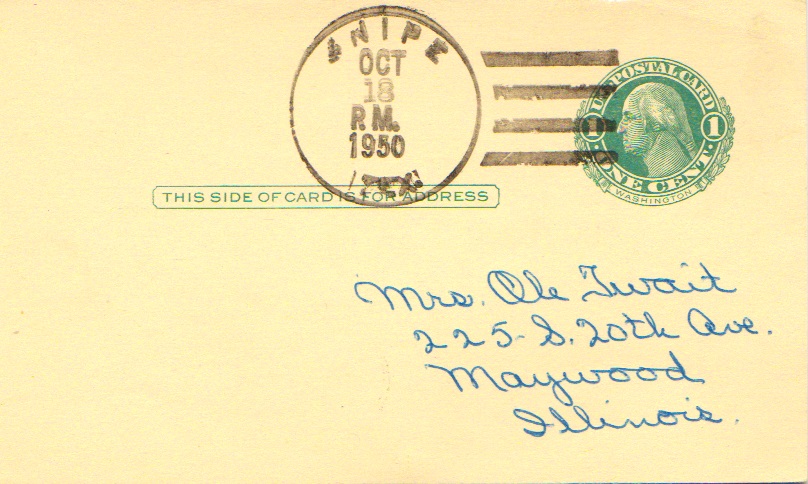 SNIPE
OCT
18
P.M.
1950
TEX.
U.S. POSTAL CARD
1 1
ONE CENT
WASHINGTON
THIS SIDE OF CARD IS FOR ADDRESS
Mrs. Ole Twait
225 S. 20th Ave.
Maywood
Illinois.